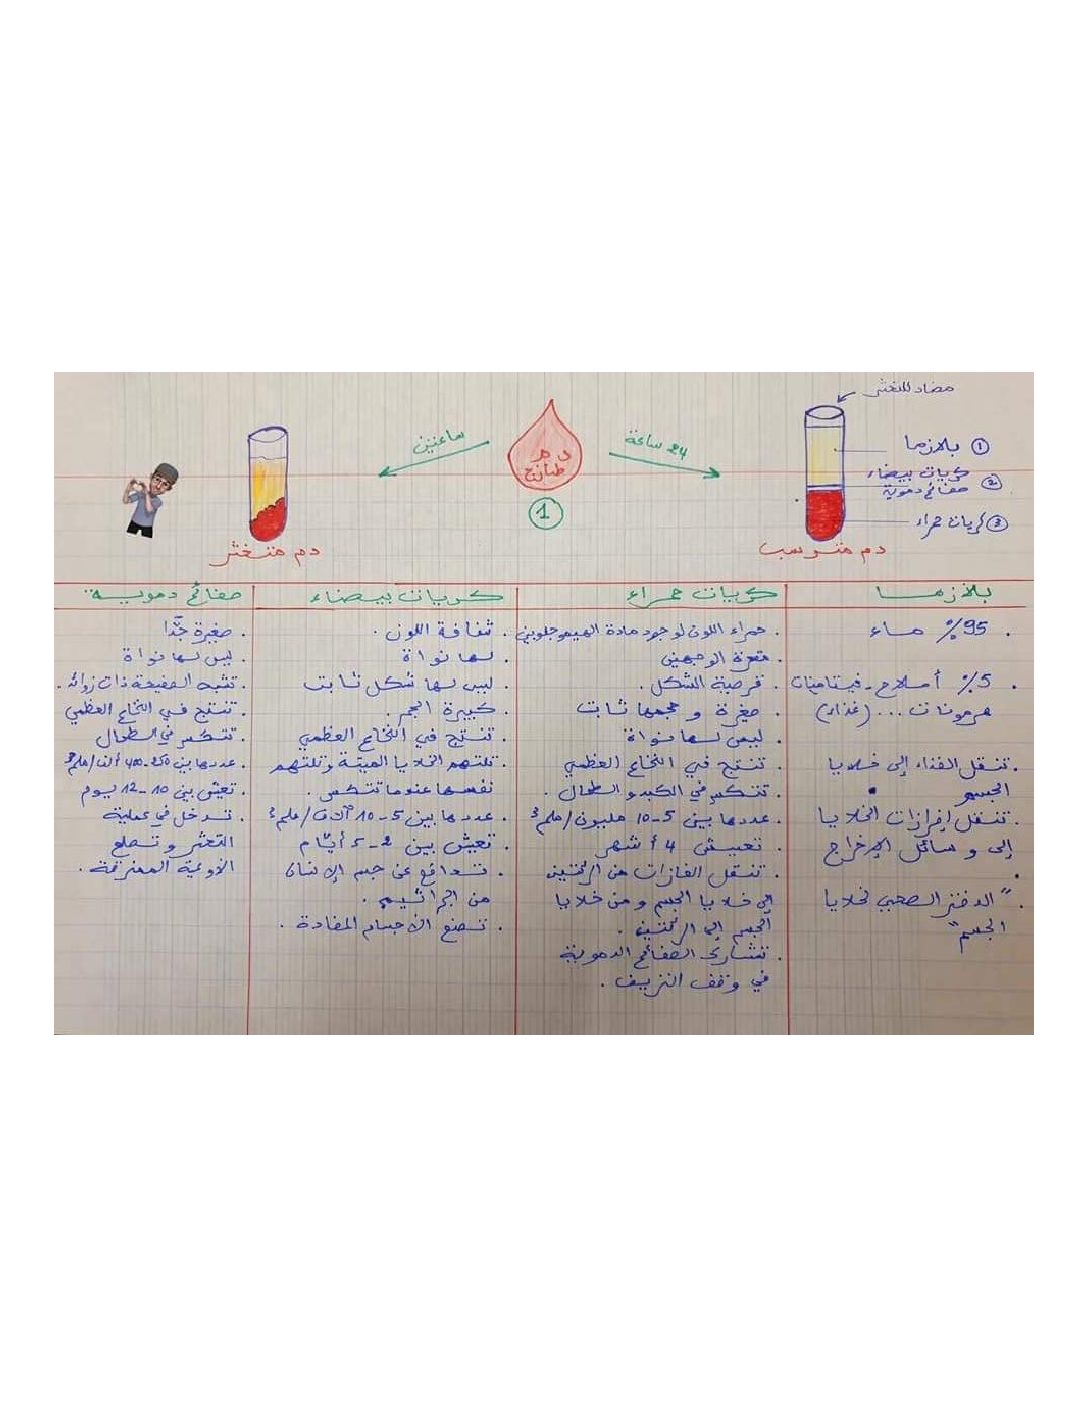 مضاد للتخثر
① بلازما
② كريات بيضاء
صفائح دموية
③ كريات حمراء
دم مترسب
24 ساعة
دم
طازج
1
ساعتين
دم متخثر
بلازما
. 95% ماء
. 5% أملاح - فيتامينات
هرمونات ... (غذاء)
. تنتقل الغذاء إلى خلايا
الجسم
. تنتقل إفرازات الخلايا
إلى وسائل الإخراج
. "الدفتر الصحي لخلايا
الجسم"
كريات حمراء
. حمراء اللون لوجود مادة الهيموجلوبين
. مقعرة الوجهين
. قرصية الشكل .
. صغيرة و حجمها ثابت
. ليس لها نواة
. تنتج في النخاع العظمي
. تتكسر في الكبد و الطحال .
. عددها بين 5-10 مليون/ملم³
. تعيش 4 أشهر
. تنتقل الغازات من الرئتين
إلى خلايا الجسم و من خلايا
الجسم إلى الرئتين .
. تشارك الصفائح الدموية
في وقف النزيف .
كريات بيضاء
. شفافة اللون .
. لها نواة
. ليس لها شكل ثابت
. كبيرة الحجم .
. تنتج في النخاع العظمي
. تلتهم الخلايا الميتة وتلتهم
نفسها عندما تتكسر .
. عددها بين 5-10 آلاف/ملم³
. تعيش بين 2-5 أيام
. تدافع عن جسم الإنسان
من الجراثيم .
. تصنع الأجسام المضادة .
صفائح دموية
. صغيرة جدًّا
. ليس لها نواة
. تشبه الصفيحة ذات زوائد .
. تنتج في النخاع العظمي
. تتكسر في الطحال
. عددها بين 250-400 ألف/ملم³
. تعيش بين 10-12 يوم
. تدخل في عملية
التخثر و تصلح
الأوعية الممزقة .